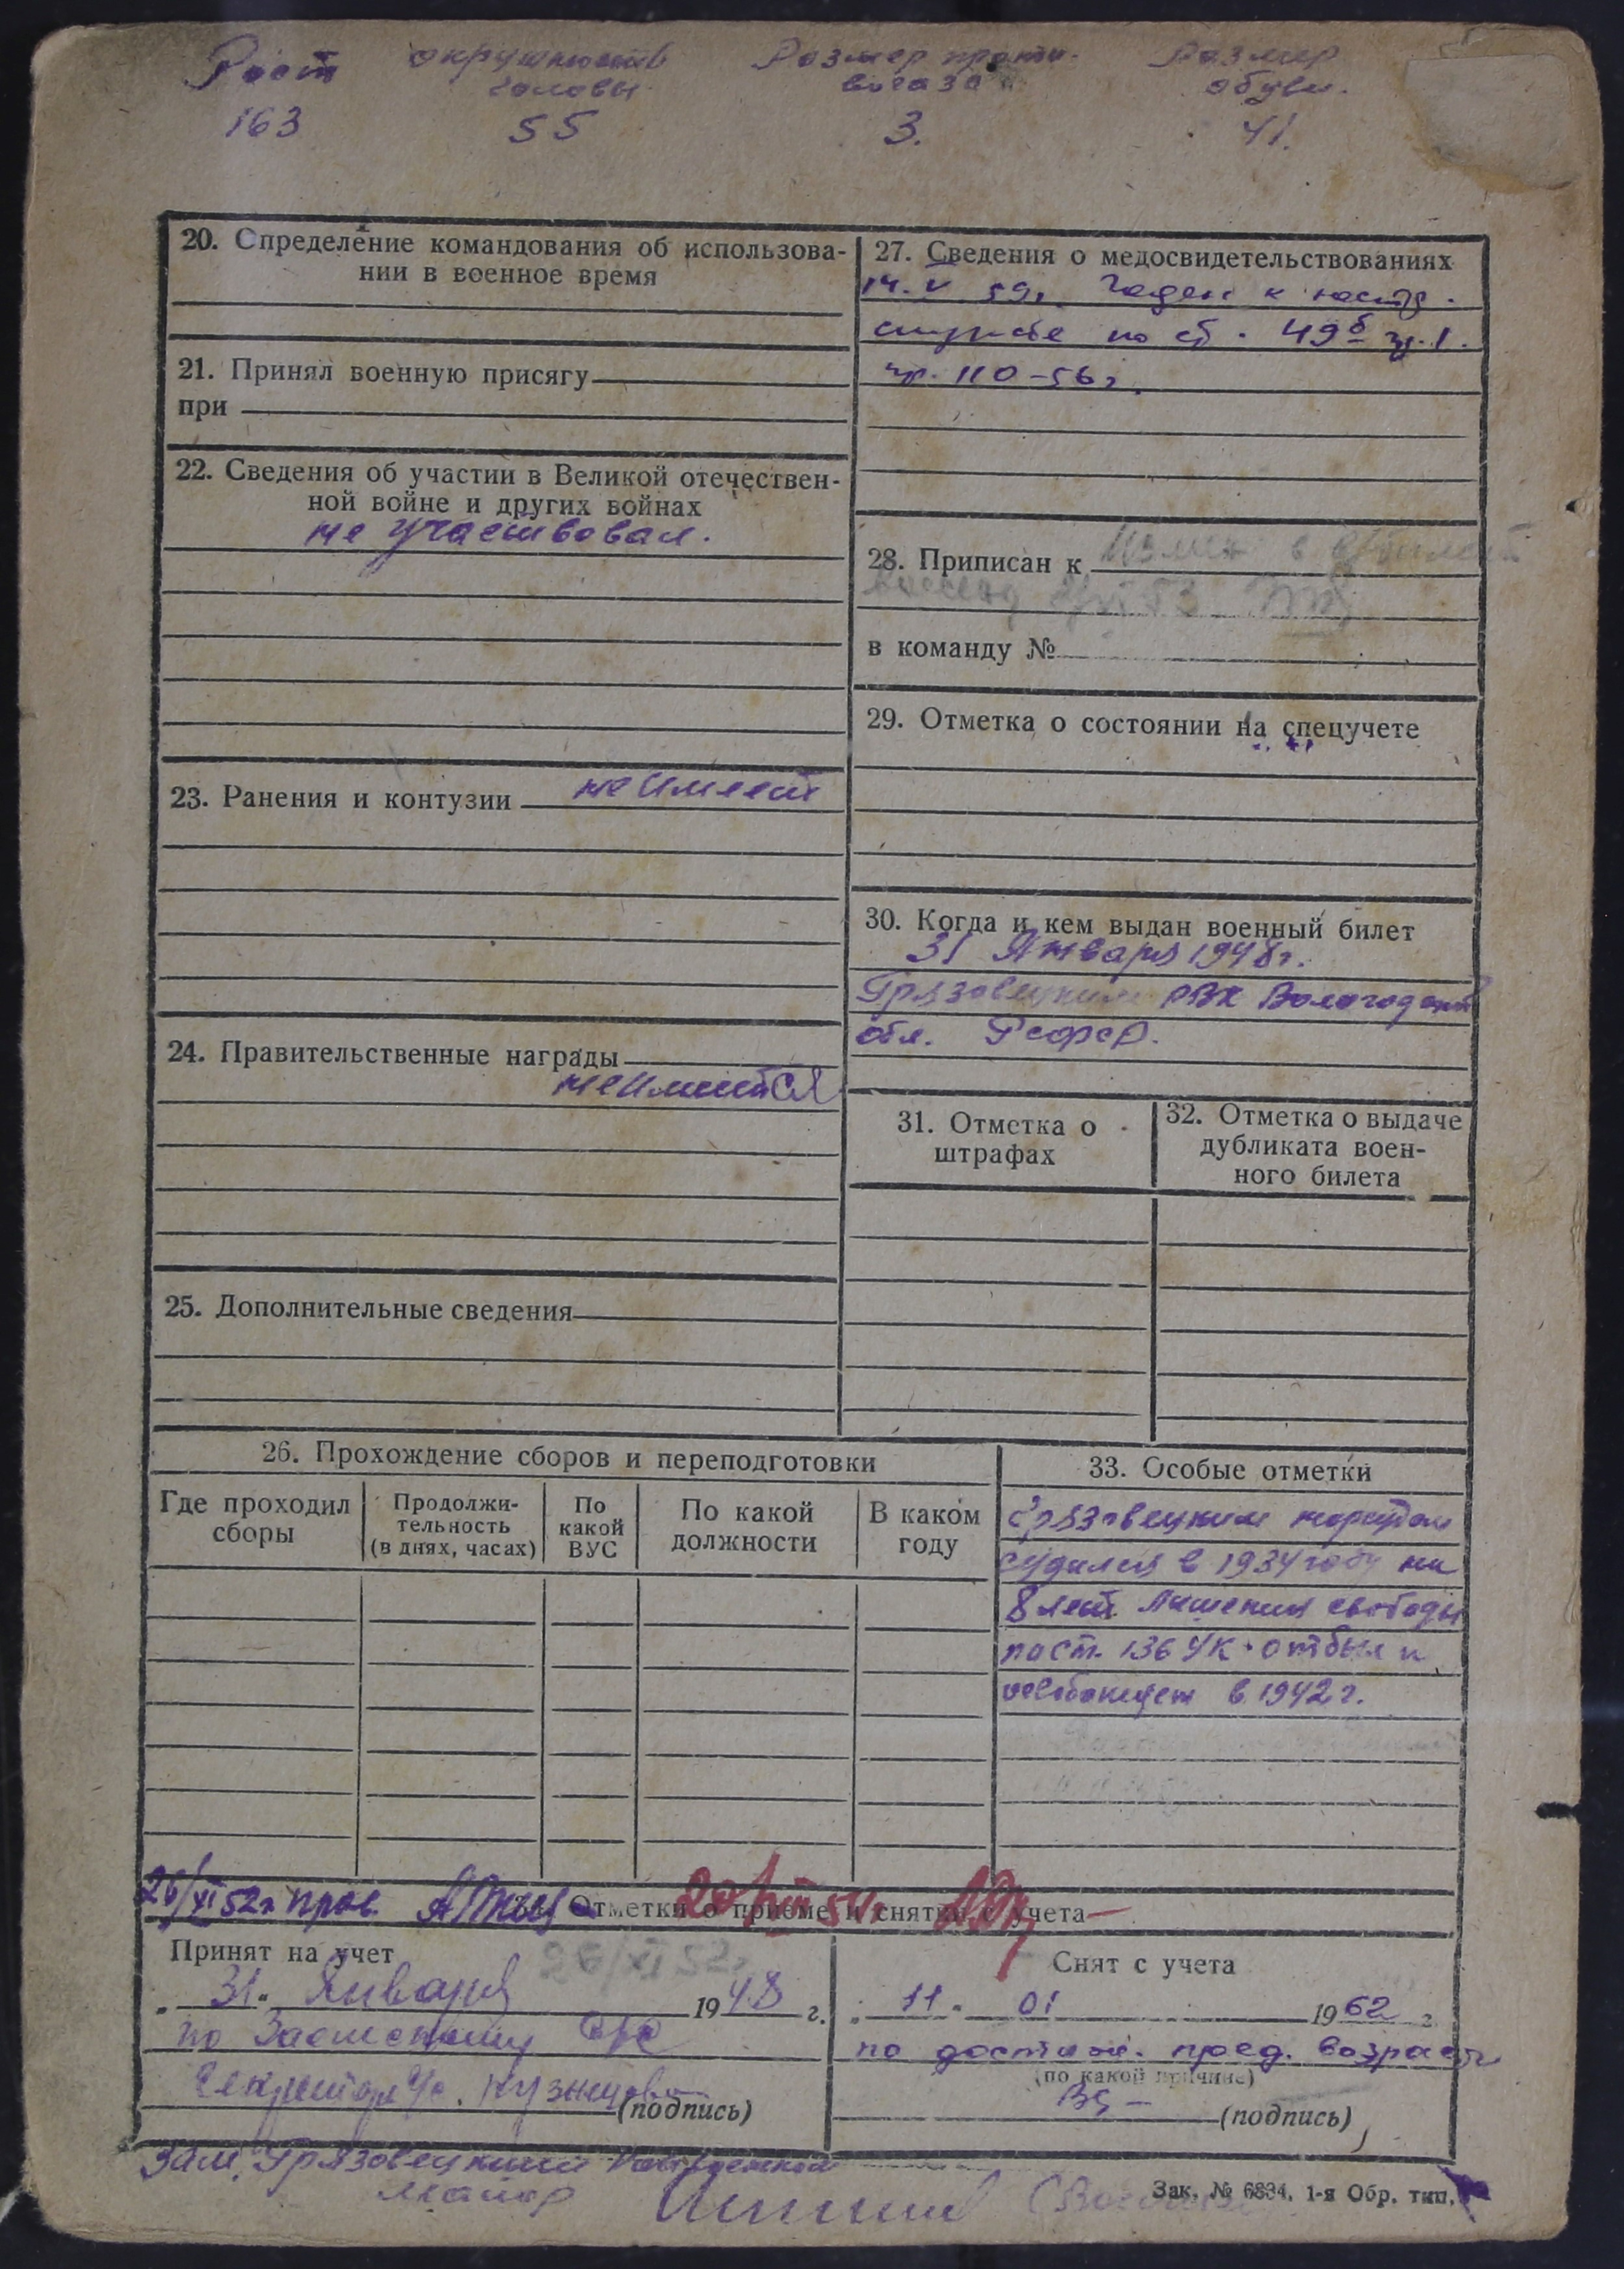 Рост окружность Размер проти- Размер
головы вогаза обуви.
163 55 3. 41.
20. Определение командования об использова-
нии в военное время
21. Принял военную присягу
при
22. Сведения об участии в Великой отечествен-
ной войне и других войнах
не участвовал.
23. Ранения и контузии не имеет
24. Правительственные награды
не имеится
25. Дополнительные сведения
27. Сведения о медосвидетельствованиях
14. V 59г. Годен к
службе по ст. 49б гр. 1.
пр. 110-56г.
28. Приписан к
в команду №
29. Отметка о состоянии на спецучете
30. Когда и кем выдан военный билет
31 Января 1948г.
Грязовецким РВК Вологодской
обл. РСФСР.
31. Отметка о
штрафах
32. Отметка о выдаче
дубликата воен-
ного билета
26. Прохождение сборов и переподготовки
Где проходил
сборы
Продолжи-
тельность
(в днях, часах)
По
какой
ВУС
По какой
должности
В каком
году
33. Особые отметки
Грязовецким нарсудом
судился в 1934 году на
8 лет лишения свободы
по ст. 136 УК. отбыл и
освобожден в 1942 г.
26/XI 52г пров.
Отметки о приеме и снятии с учета
Принят на учет 26/XI 52г
„31“ Января 1948 г.
по
Секретарь Кузнецова
(подпись)
Снят с учета
„11“ 01 1962 г.
по достиж. пред. возраста
(по какой причине)
(подпись)
Зам. Грязовецкий
майор
Зак. № 6894. 1-я Обр. тип.